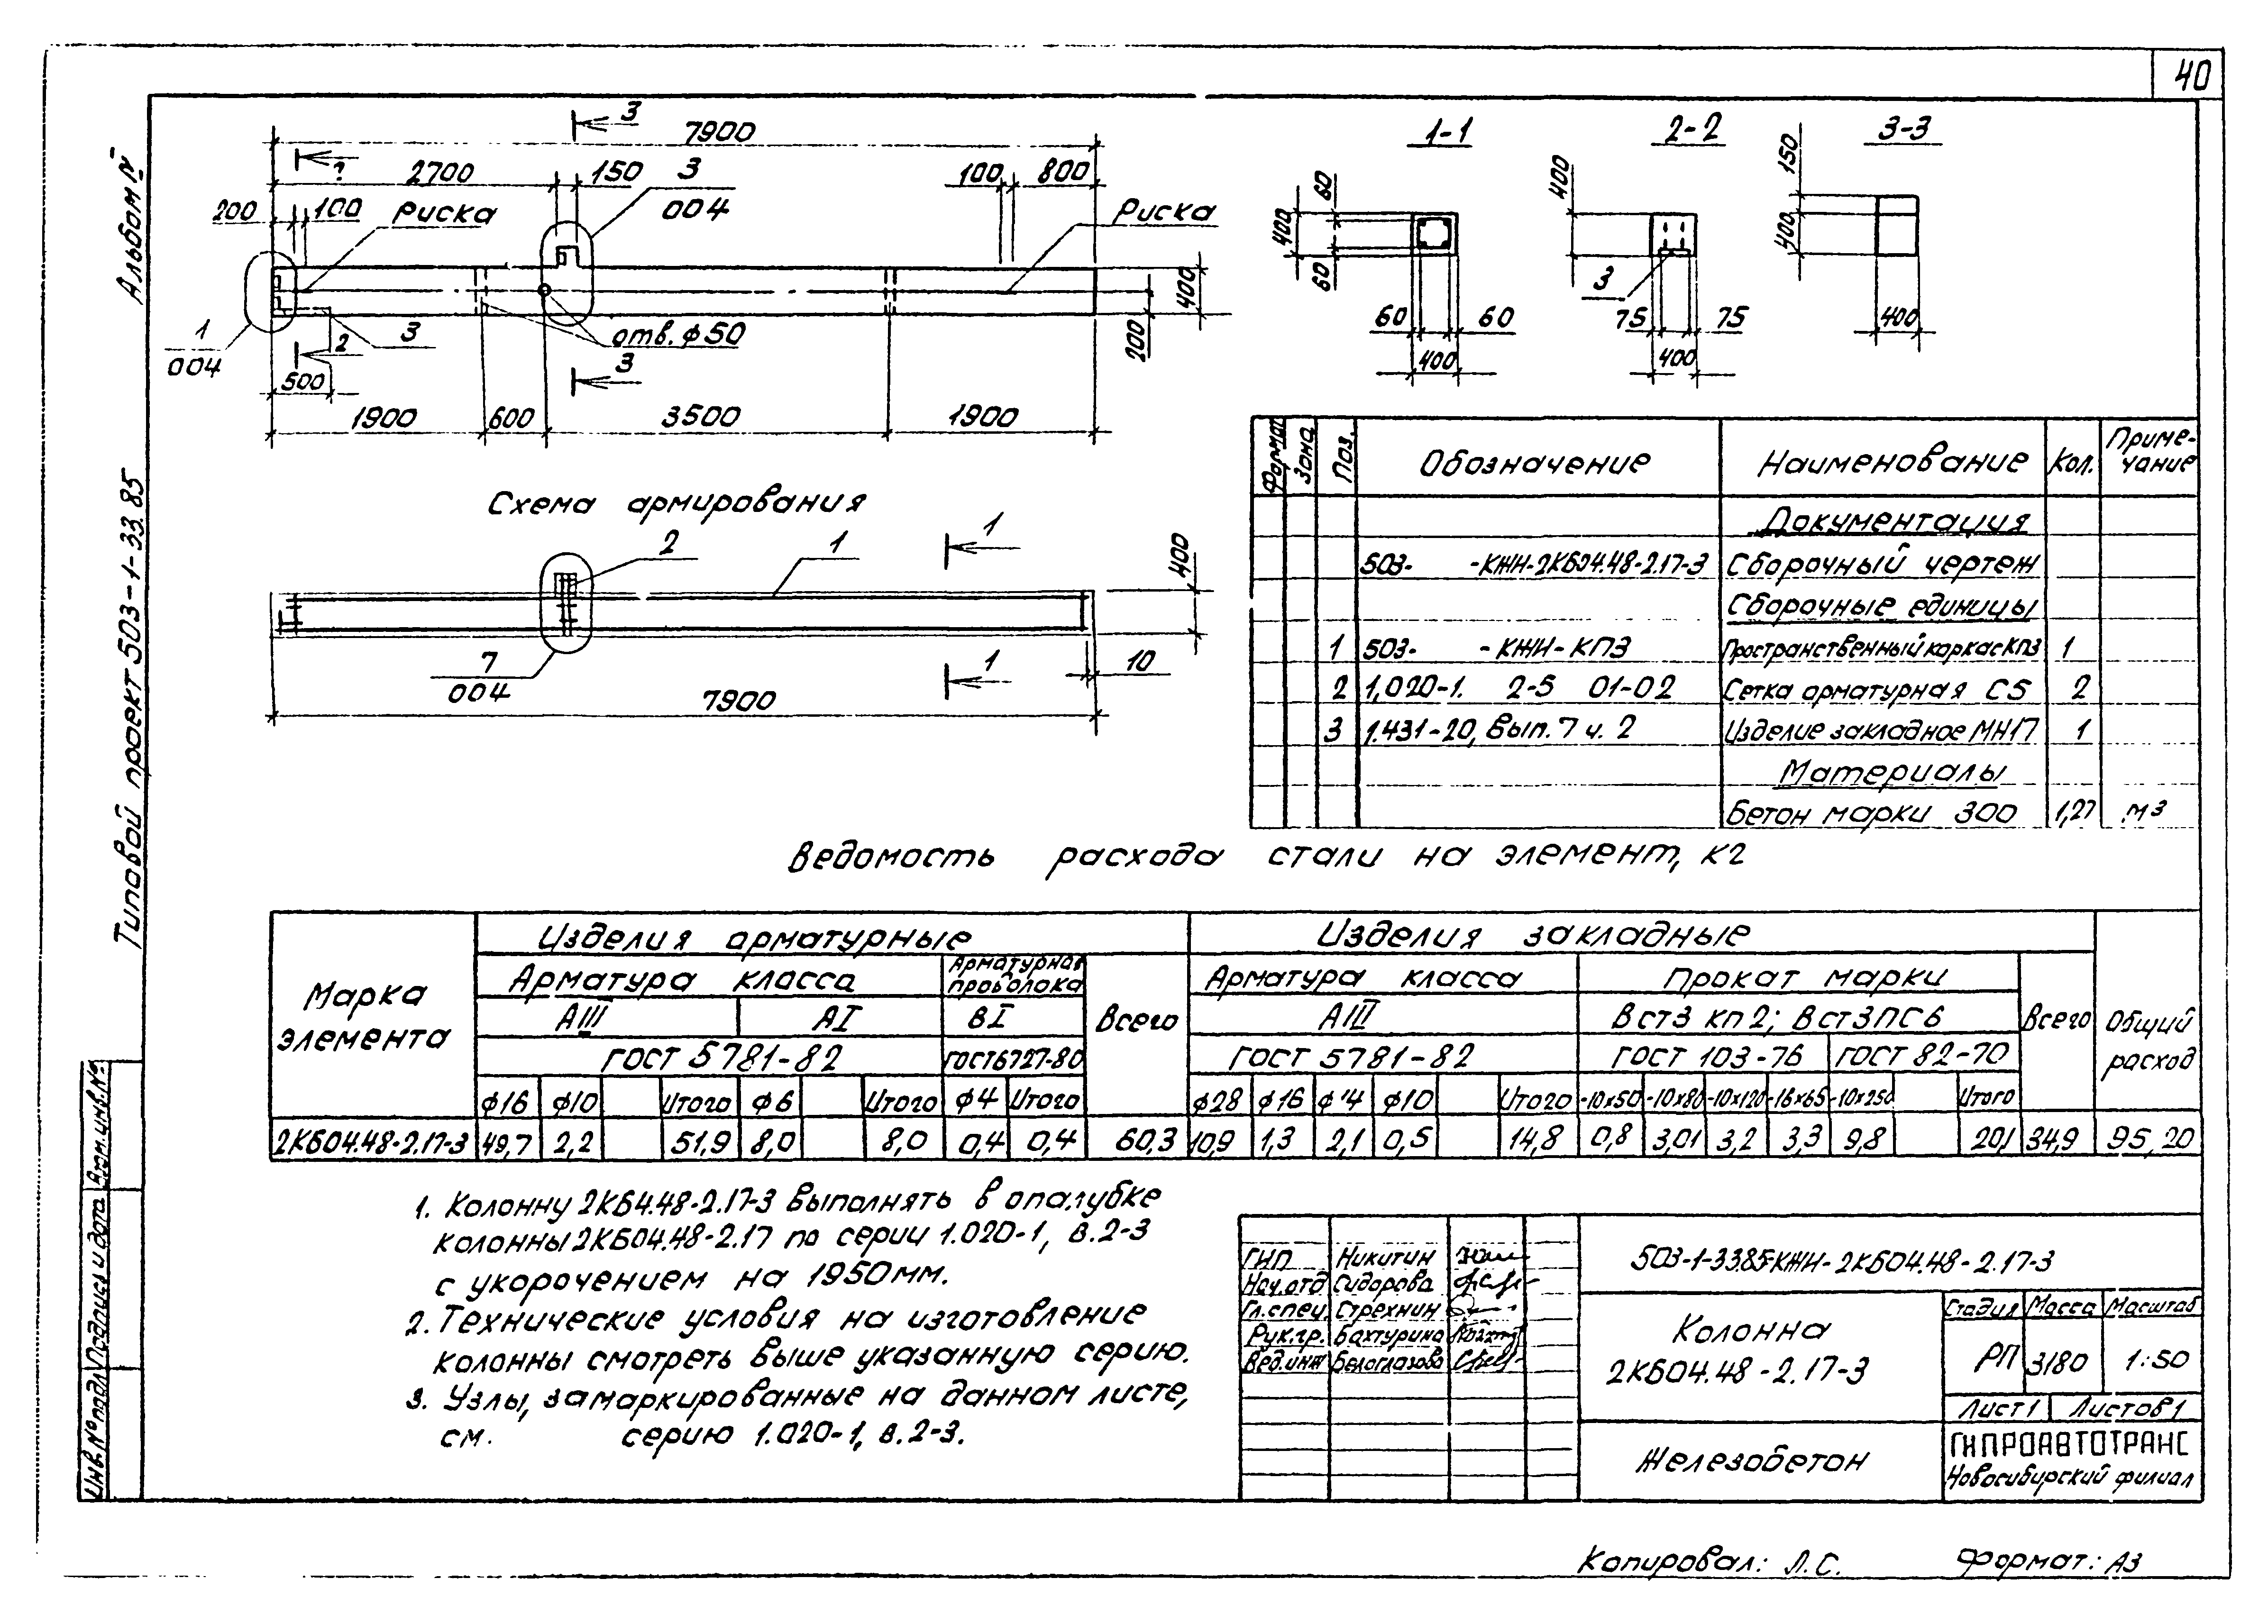 40
Альбом №
Типовой проект 503-1-33.85
Взам.инв.№
Подпись и дата
Инв.№ подл
3
7900
2700
150
3
004
100
800
200
100
Риска
Риска
1
004
2
3
отв. ф50
3
400
200
500
1900
600
3500
1900
1-1
2-2
3-3
60
400
60
60
60
400
400
3
75
75
400
150
400
400
Схема армирования
2
1
1
400
7
004
1
10
7900
Формат
Зона
Поз.
Обозначение
Наименование
Кол.
Приме-
чание
Документация
503- -КЖИ-2КБ04.48-2.17-3
Сборочный чертеж
Сборочные единицы
1 503- -КЖИ-КП3 Пространственный каркас КП3 1
2 1,020-1. 2-5 01-02 Сетка арматурная С5 2
3 1.431-20, Вып. 7 ч. 2 Изделие закладное МН17 1
Материалы
Бетон марки 300 1,27 м3
Ведомость расхода стали на элемент, кг
Марка
элемента
Изделия арматурные
Изделия закладные
Арматура класса
Арматурная
проволока
Всего
Арматура класса
Прокат марки
Всего
Общий
расход
АIII
АI
ВI
АIII
Вст3 кп2; Вст3пс6
ГОСТ 5781-82
ГОСТ6727-80
ГОСТ 5781-82
ГОСТ 103-76
ГОСТ 82-70
ф16 ф10 Итого ф6 Итого ф4 Итого ф28 ф16 ф14 ф10 Итого -10х50 -10х80 -10х120 -16х65 -10х250 Итого
2КБ04.48-2.17-3 49,7 2,2 51,9 8,0 8,0 0,4 0,4 60,3 10,9 1,3 2,1 0,5 14,8 0,8 3,01 3,2 3,3 9,8 20,1 34,9 95,20
1. Колонну 2КБ4.48-2.17-3 выполнять в опалубке
колонны 2КБ04.48-2.17 по серии 1.020-1, в.2-3
с укорочением на 1950мм.
2. Технические условия на изготовление
колонны смотреть выше указанную серию.
3. Узлы, замаркированные на данном листе,
см. серию 1.020-1, в.2-3.
ГИП Никитин
Нач.отд Сидорова
Гл.спец. Стрехнин
Рук.гр. Бахтурина
Вед.инж Белоглазова
503-1-33.85-КЖИ-2КБ04.48-2.17-3
Колонна
2КБ04.48-2.17-3
Стадия Масса Масштаб
РП 3180 1:50
Лист 1 Листов 1
Железобетон
ГИПРОАВТОТРАНС
Новосибирский филиал
Копировал: Л.С.
Формат: А3